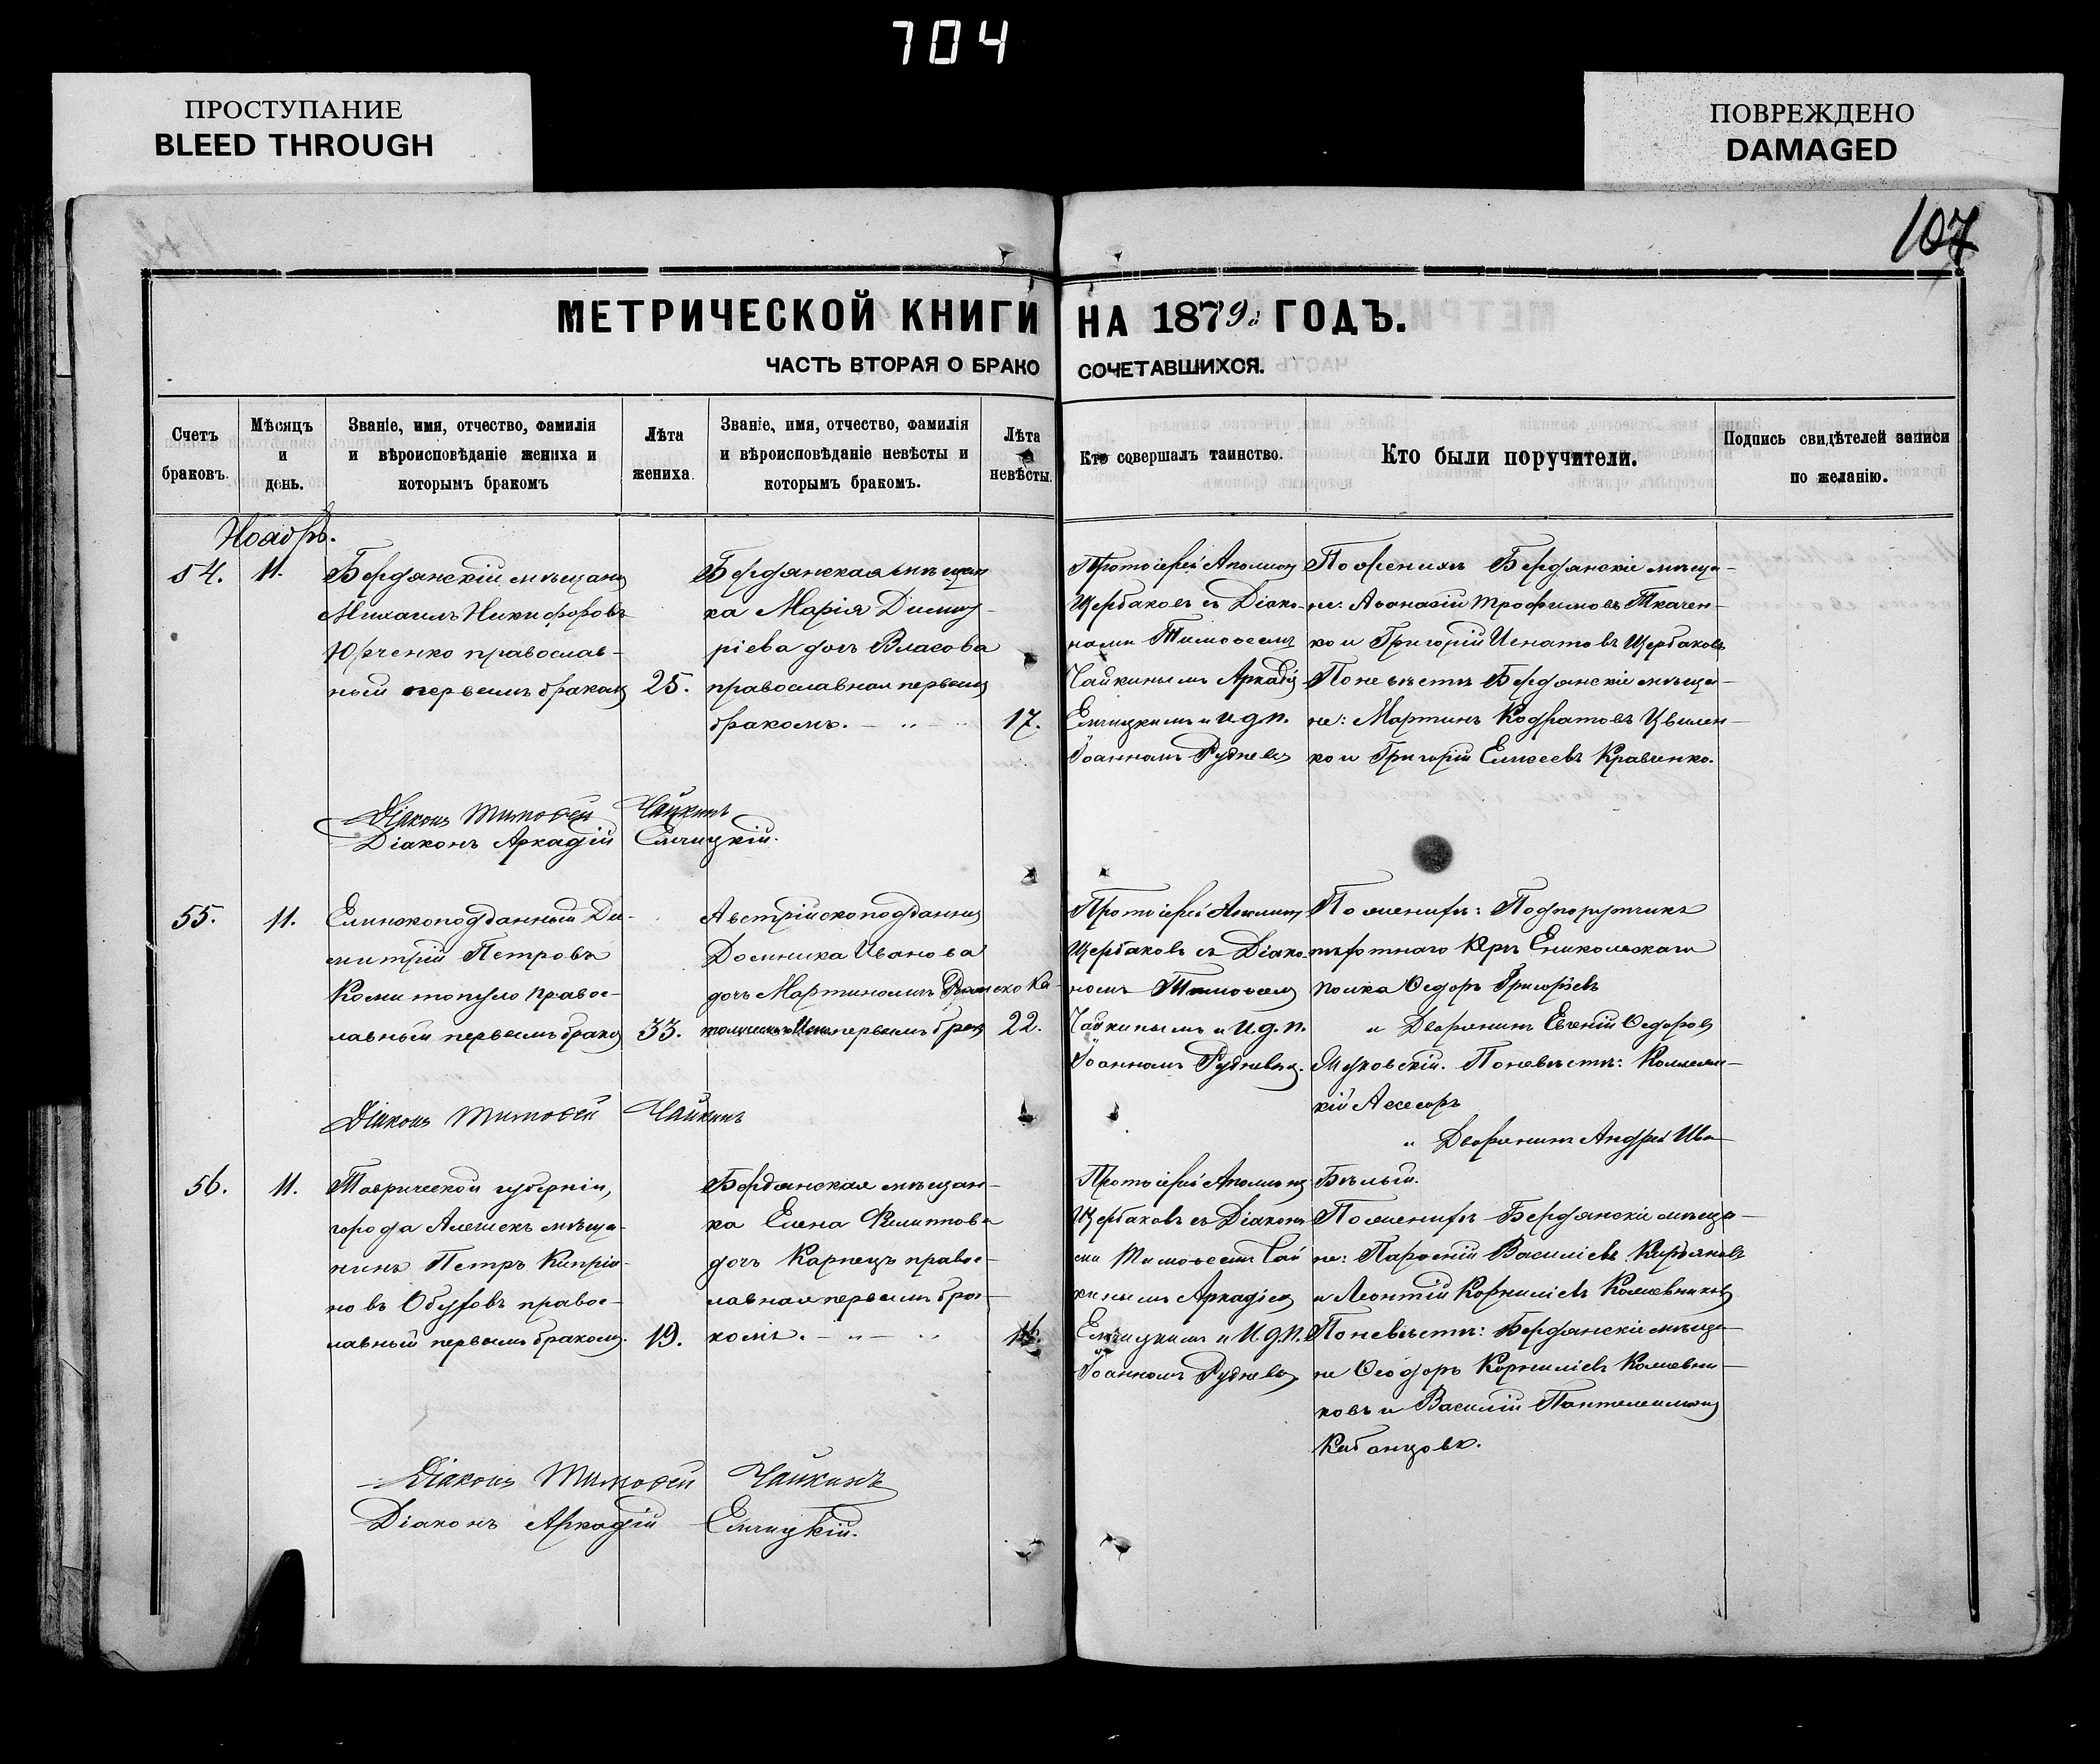 704
ПРОСТУПАНИЕ
BLEED THROUGH
ПОВРЕЖДЕНО
DAMAGED
107
МЕТРИЧЕСКОЙ КНИГИ НА 1879й ГОДЪ.
ЧАСТЬ ВТОРАЯ О БРАКО СОЧЕТАВШИХСЯ.
Счетъ браковъ.
Мѣсяцъ и день.
Званіе, имя, отчество, фамилія
и вѣроисповѣданіе жениха и
которымъ бракомъ
Лѣта жениха
Званіе, имя, отчество, фамилія
и вѣроисповѣданіе невѣсты и
которымъ бракомъ.
Лѣта невѣсты.
Кто совершалъ таинство.
Кто были поручители.
Подпись свидѣтелей записи
по желанію.
Ноябрь.
54.
11.
Бердянскій мѣщанинъ
Михаилъ Никифоровъ
Юрченко православ-
ный первымъ бракомъ
25.
Бердянская мѣщан
ка Марія Димит-
ріева дочь Власова
православная первымъ
бракомъ. — „ —
17.
Протоіерей Аполлонъ
Щербаковъ съ Діако-
нами Тимоѳеемъ
Чайкинымъ Аркадіемъ
Елчицкимъ и И.д.п.
Іоанномъ Рудневымъ
По женихѣ Бердянскіе мѣща-
не: Аѳанасій Трофимовъ Ткачен-
ко и Григорій Игнатовъ Щербаковъ
По невѣстѣ Бердянскіе мѣща-
не: Мартинъ Кодратовъ Цвилен-
ко и Григорій Елисеевъ Кравченко.
Діаконъ Тимоѳей Чайкинъ
Діаконъ Аркадій Елчицкій.
55.
11.
Еллинскоподданный Ди-
митрій Петровъ
Косми топуло правос-
лавный первымъ бракомъ
33.
Австрійскоподданная
Доминика Иванова
дочь Мартиномичъ Римско Ка-
первымъ бракомъ
22.
Протоіерей Аполлонъ
Щербаковъ съ Діако-
номъ Тимоѳеемъ
Чайкинымъ и И.д.п.
Іоанномъ Рудневымъ.
По женихѣ: Подпорутчикъ
пѣхотнаго Крѣ Еникольскаго
полка Ѳедоръ Григорьевъ
и Дворянинъ Евгеній Ѳедоровъ
По невѣстѣ: Коллежс-
кій Асесоръ
„ Дворянинъ Андрей Ива
Бѣлый.
Діаконъ Тимоѳей Чайкинъ
56.
11.
Таврической губерніи,
города Алешекъ мѣща-
нинъ Петръ Кипріа-
новъ Обуховъ правос-
лавный первымъ бракомъ.
19.
Бердянская мѣщан-
ка Елена Филиппова
дочь Карпецъ правос-
лавная первымъ бра-
комъ. — „ —
16.
Протоіерей Аполлонъ
Щербаковъ съ Діакона
ми Тимоѳеемъ Чай
кинымъ Аркадіемъ
Елчицкимъ и И.д.п.
Іоанномъ Рудневымъ
По женихѣ Бердянскіе мѣща-
не: Парѳеній Василіевъ Кирьяновъ
и Леонтій Корниліевъ Кожевниковъ
По невѣстѣ: Бердянскіе мѣща-
не Ѳеодоръ Корниліевъ Кожевни-
ковъ и Василій Пантелеимоновъ
Кабанцовъ.
Діаконъ Тимоѳей Чайкинъ
Діаконъ Аркадій Елчицкій.